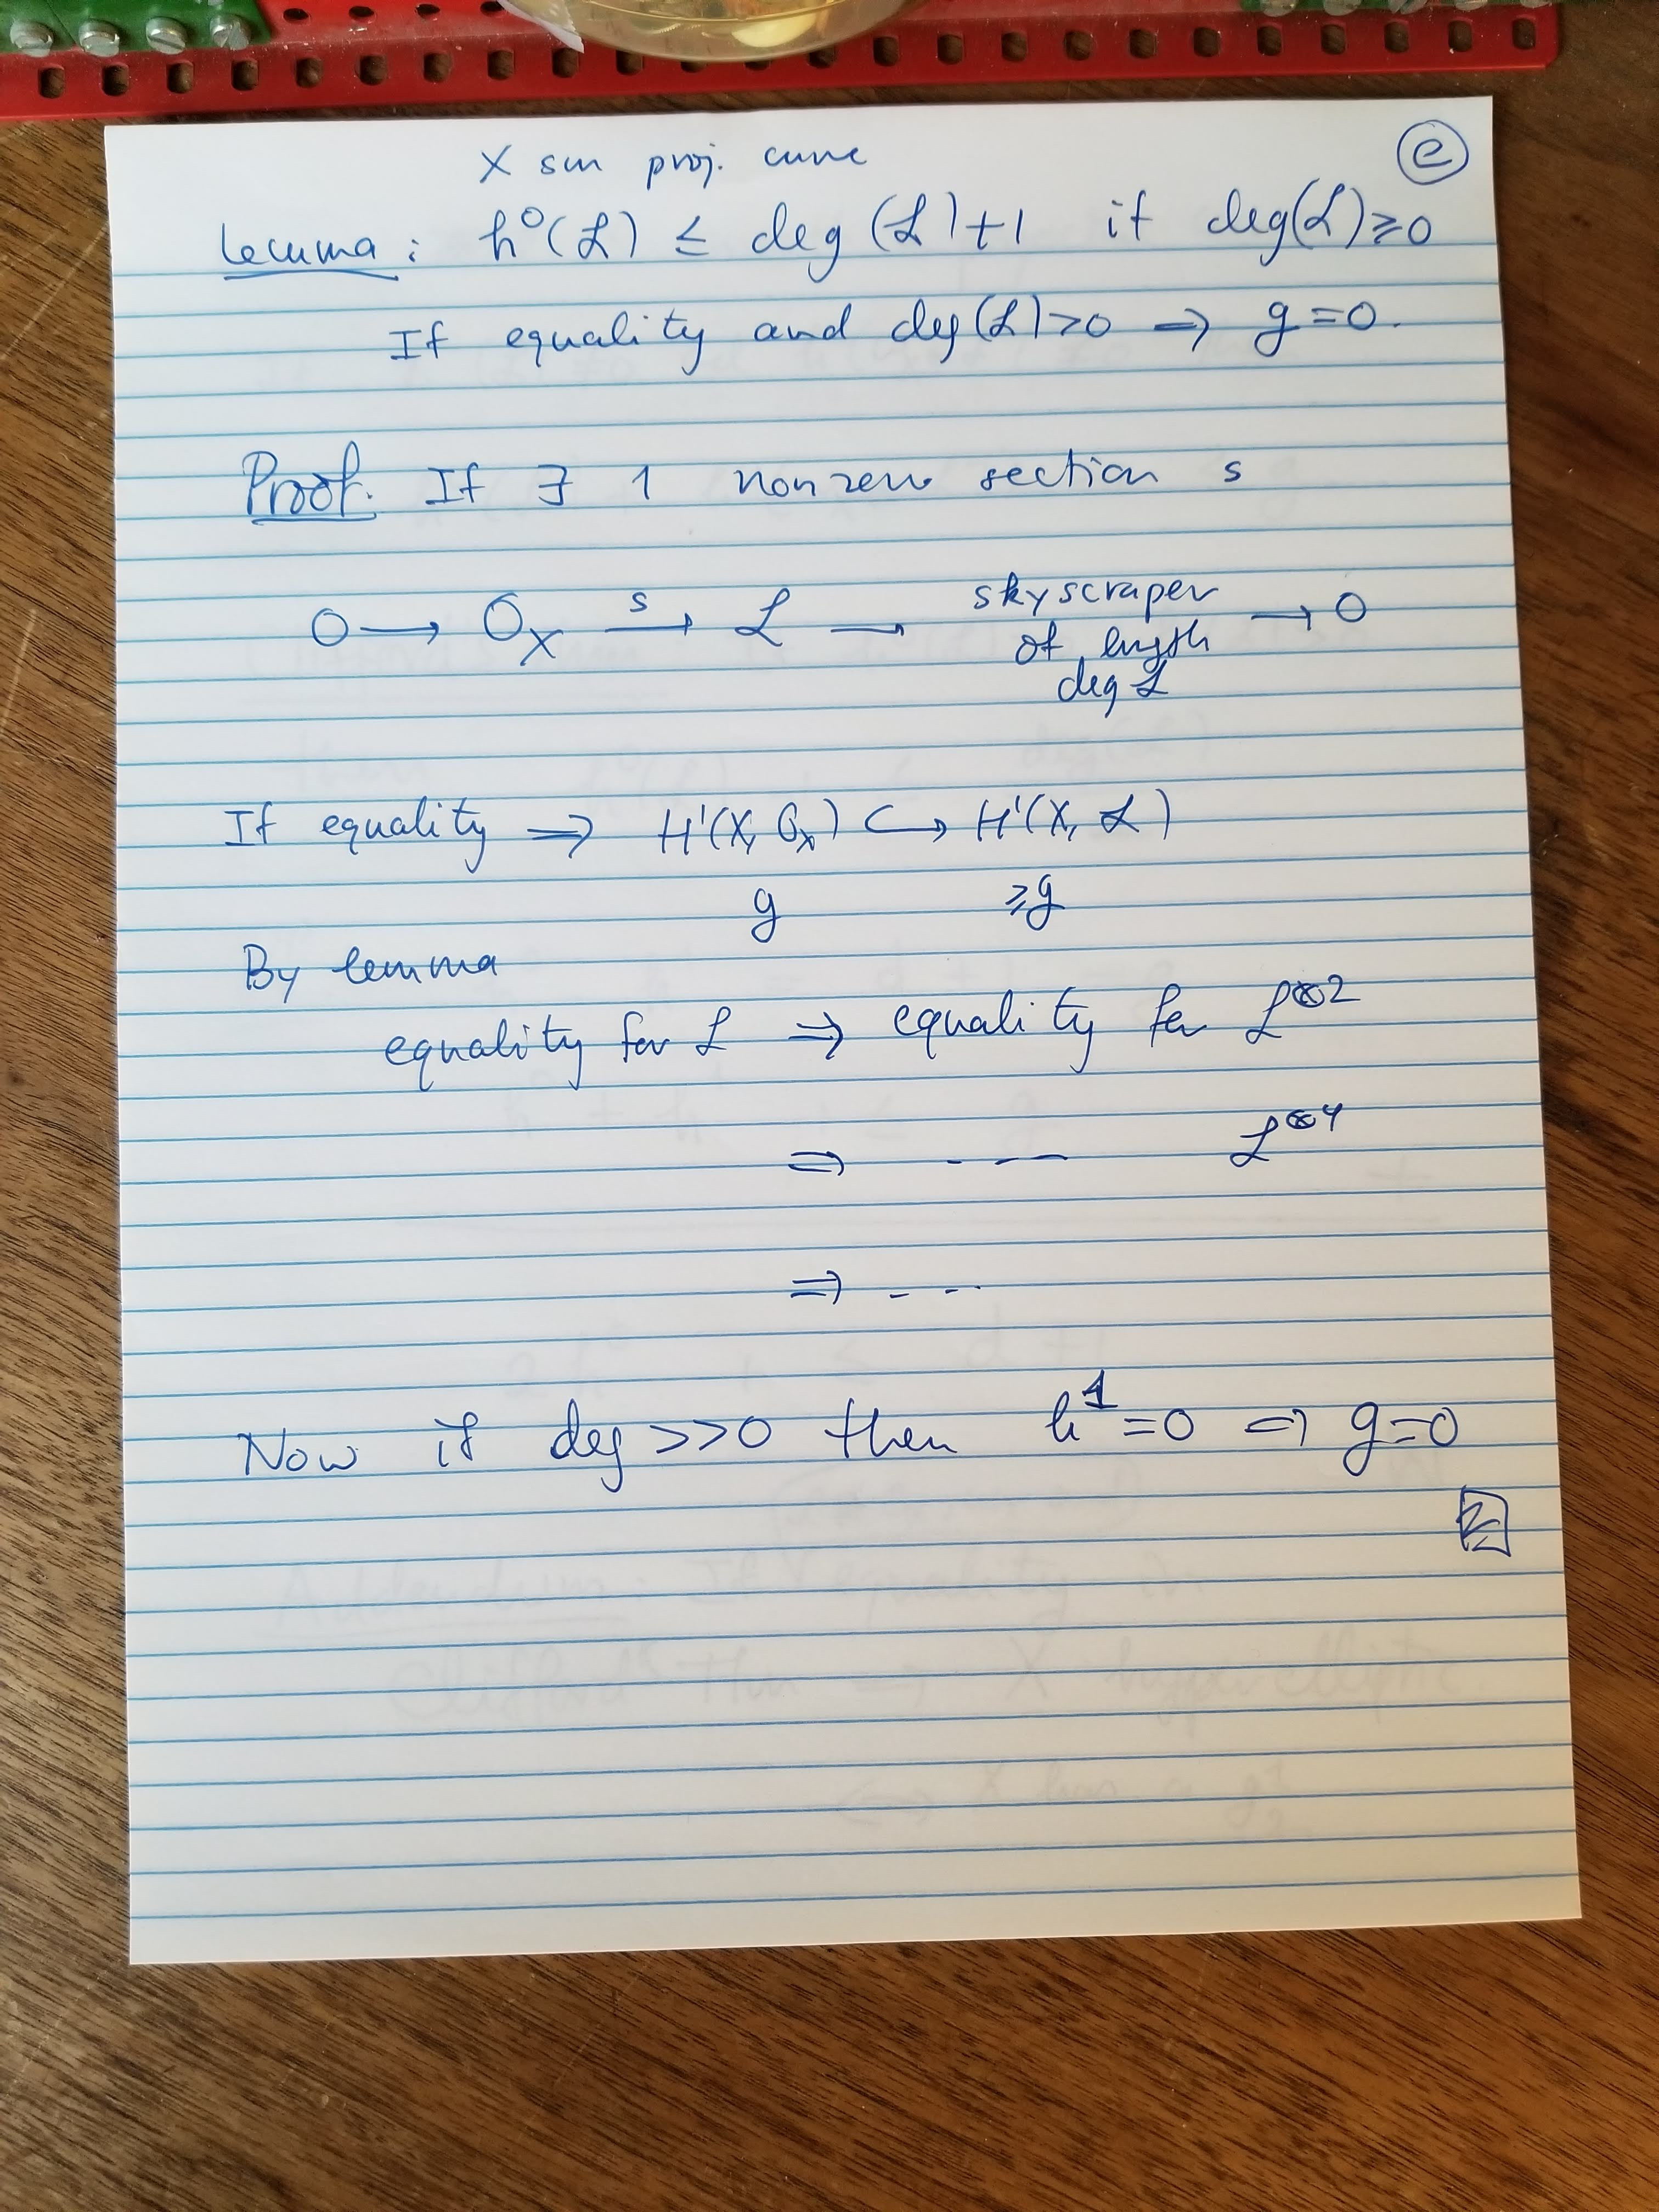 X sm proj. curve
ⓔ
Lemma: h⁰(ℒ) ≤ deg(ℒ)+1 if deg(ℒ)≥0
If equality and deg(ℒ)>0 ⇒ g=0.
Proof. If ∃ 1 nonzero section s
0 → O_X →^s ℒ → skyscraper of length deg ℒ → 0
If equality ⇒ H¹(X, O_X) ↪ H¹(X, ℒ)
g ≥g
By lemma
equality for ℒ ⇒ equality for ℒ^⊗2
⇒ - - - ℒ^⊗4
⇒ - - -
Now if deg >>0 then h¹=0 ⇒ g=0